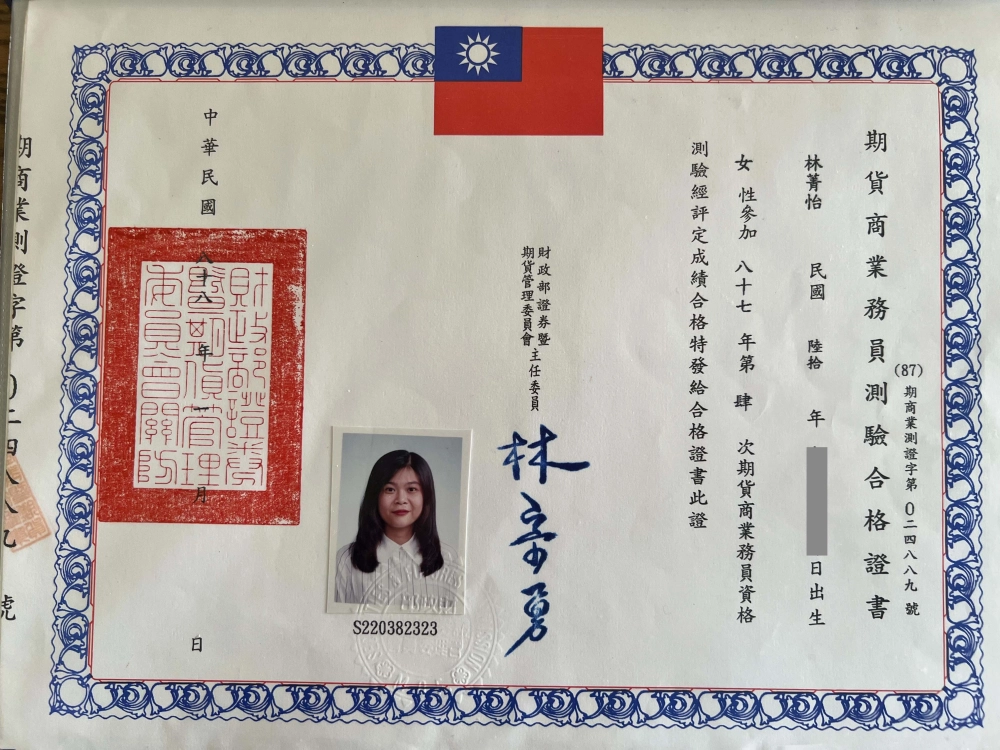 期貨商業務員測驗合格證書
(87)期商業測證字第0二四八八九號
林菁怡 民國 陸拾 年 日出生
女性參加 八十七 年第 肆 次期貨商業務員資格
測驗經評定成績合格特發給合格證書此證
財政部證券暨
期貨管理委員會 主任委員
林宗勇
S220382323
中華民國 八十八 年 一 月 日
財政部證券
暨期貨管理
委員會關防
期商業測證字第0二四八八九號